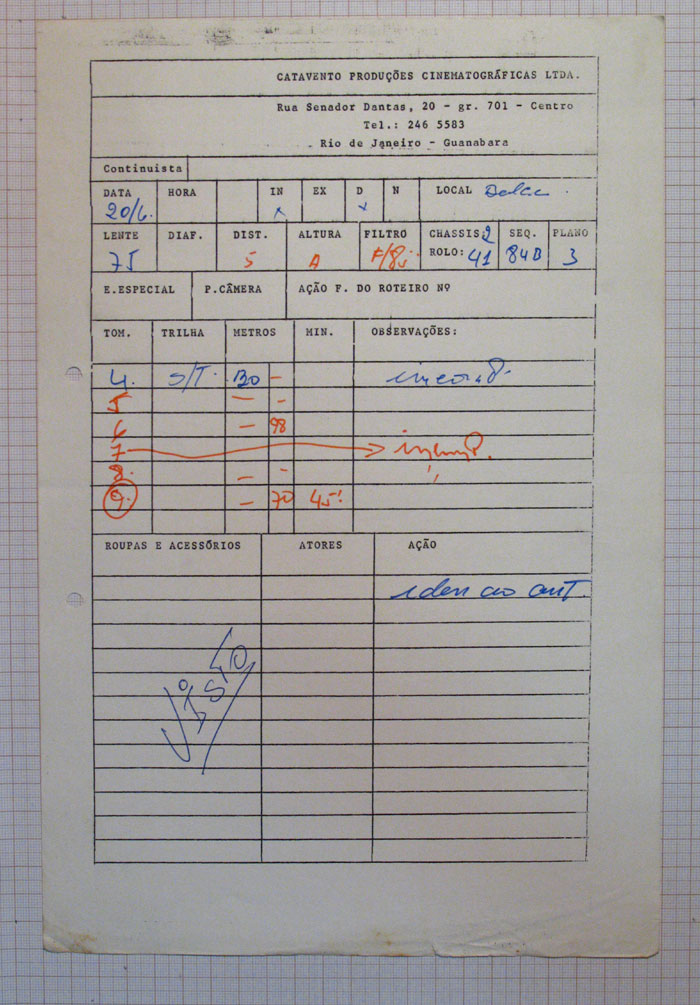 CATAVENTO PRODUÇÕES CINEMATOGRÁFICAS LTDA.
Rua Senador Dantas, 20 - gr. 701 - Centro
Tel.: 246 5583
Rio de Janeiro - Guanabara
Continuista
DATA HORA IN EX D N LOCAL
20/6.
LENTE DIAF. DIST. ALTURA FILTRO CHASSIS: 2 SEQ. PLANO
75 5 A F/8 ROLO: 41 84B 3
E.ESPECIAL P.CÂMERA AÇÃO F. DO ROTEIRO Nº
TOM. TRILHA METROS MIN. OBSERVAÇÕES:
4. S/T. -
5 - -
6 - 98
7
8. - - "
9. - 70 45'
ROUPAS E ACESSÓRIOS ATORES AÇÃO
idem ao ant.
VISTO